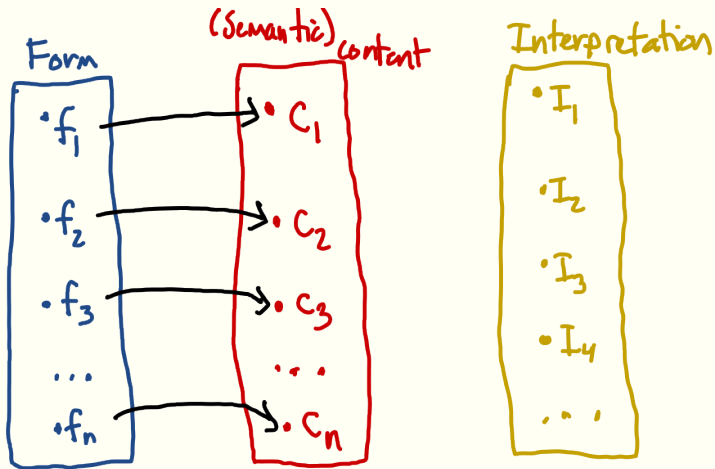 Form
f₁
f₂
f₃
...
fₙ
(Semantic) content
C₁
C₂
C₃
...
Cₙ
Interpretation
I₁
I₂
I₃
I₄
...